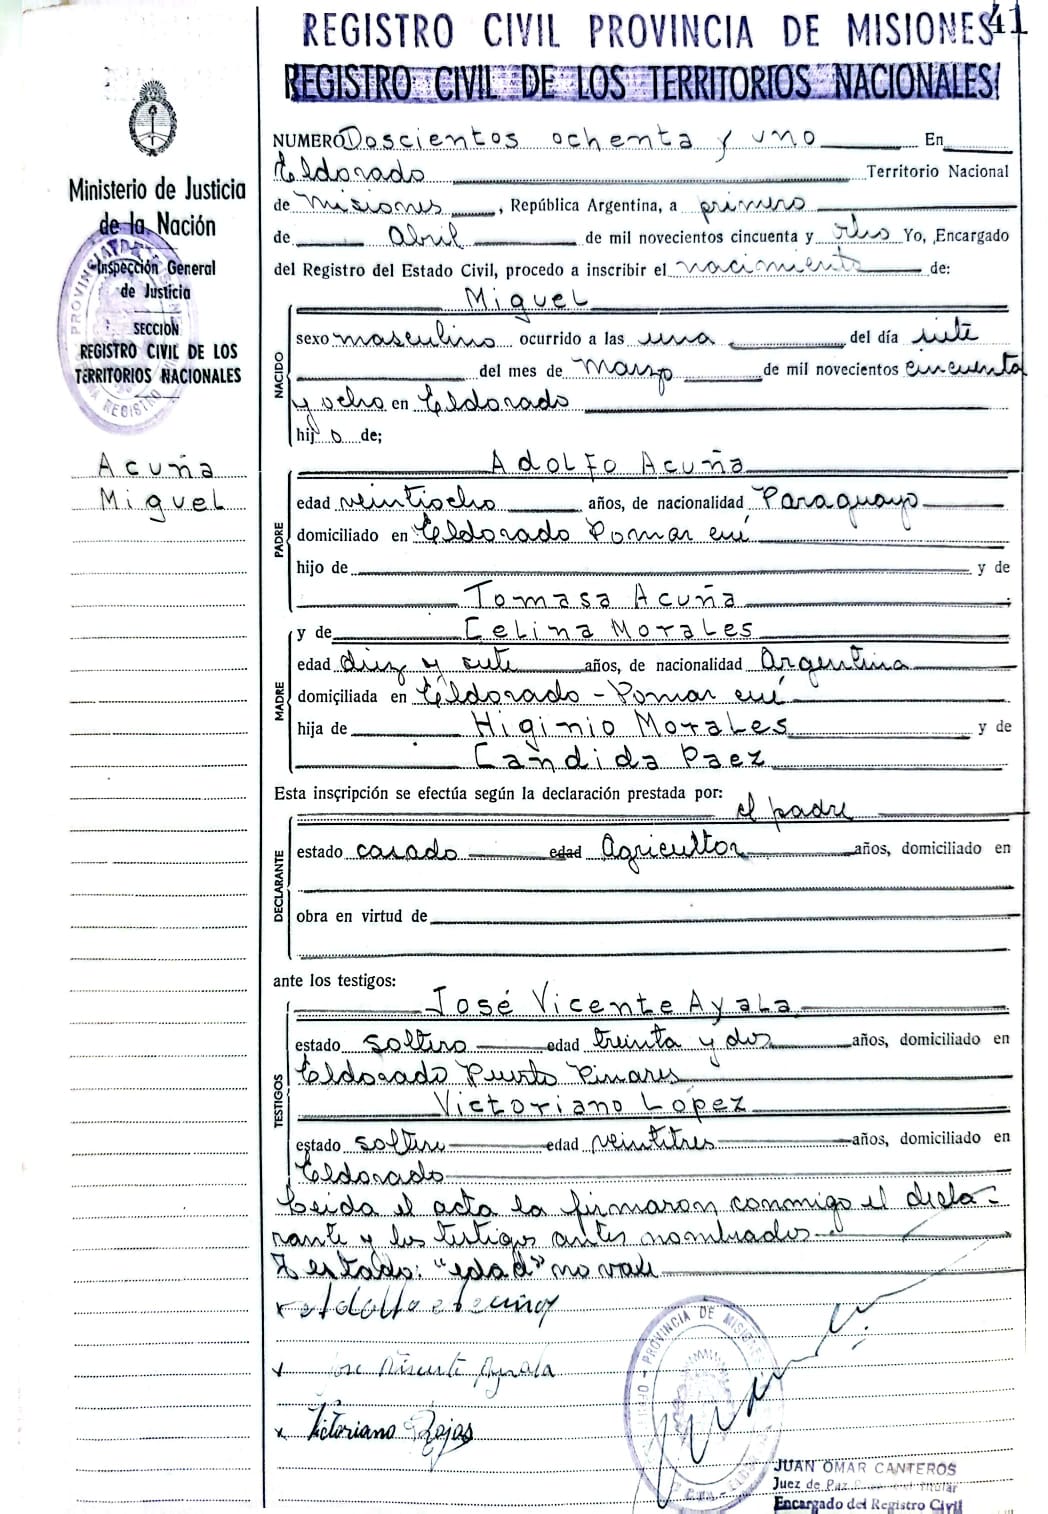 41
REGISTRO CIVIL PROVINCIA DE MISIONES
REGISTRO CIVIL DE LOS TERRITORIOS NACIONALES
Ministerio de Justicia
de la Nación
Inspección General
de Justicia
SECCIÓN
REGISTRO CIVIL DE LOS
TERRITORIOS NACIONALES
Acuña
Miguel
NUMERO Doscientos ochenta y uno En
Eldorado Territorio Nacional
de Misiones, República Argentina, a primero
de Abril de mil novecientos cincuenta y Yo, Encargado
del Registro del Estado Civil, procedo a inscribir el nacimiento de:
NACIDO
Miguel
sexo masculino ocurrido a las una del día siete
del mes de Marzo de mil novecientos cincuenta
y ocho en Eldorado
hijo de;
PADRE
Adolfo Acuña
edad veintiocho años, de nacionalidad Paraguayo
domiciliado en Eldorado Pomar cuí
hijo de y de
Tomasa Acuña
MADRE
y de Celina Morales
edad diez y siete años, de nacionalidad Argentina
domiciliada en Eldorado - Pomar cuí
hija de Higinio Morales y de
Candida Paez
Esta inscripción se efectúa según la declaración prestada por:
DECLARANTE
el padre
estado casado edad Agricultor años, domiciliado en
obra en virtud de
ante los testigos:
TESTIGOS
José Vicente Ayala
estado soltero edad treinta y dos años, domiciliado en
Eldorado Puerto Pinares
Victoriano Lopez
estado soltero edad veintitres años, domiciliado en
Eldorado
Leida el acta la firmaron conmigo el decla-
rante y los testigos antes nombrados.-
Testado: "edad" no vale
x Adolfo Acuña
x Jose Visente Ayala
x Victoriano Rojas
PROVINCIA DE MISIONES
JUAN OMAR CANTEROS
Juez de Paz Titular
Encargado del Registro Civil